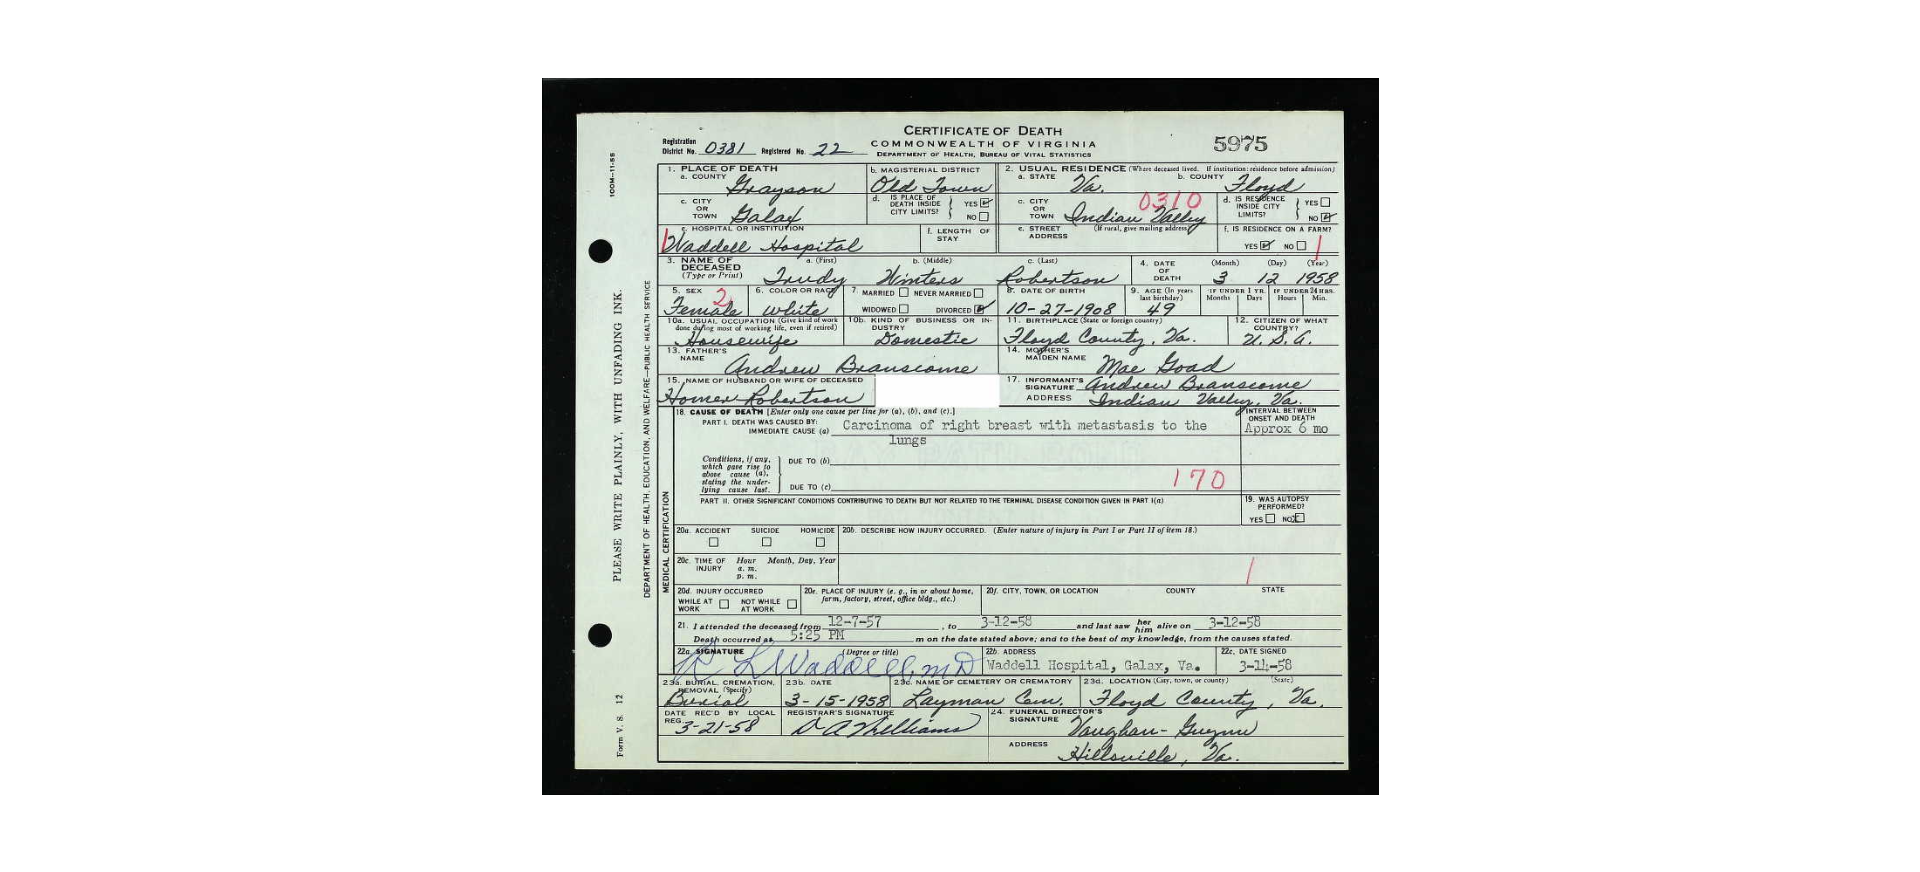 CERTIFICATE OF DEATH
COMMONWEALTH OF VIRGINIA
DEPARTMENT OF HEALTH, BUREAU OF VITAL STATISTICS
Registration District No. 0381 Registered No. 22
5975
100M-11-55
PLEASE WRITE PLAINLY, WITH UNFADING INK.
DEPARTMENT OF HEALTH, EDUCATION, AND WELFARE—PUBLIC HEALTH SERVICE
Form V. S. 12
MEDICAL CERTIFICATION
1. PLACE OF DEATH
a. COUNTY Grayson
b. MAGISTERIAL DISTRICT Old Town
2. USUAL RESIDENCE (Where deceased lived. If institution: residence before admission)
a. STATE Va.
b. COUNTY Floyd
c. CITY OR TOWN Galax
d. IS PLACE OF DEATH INSIDE CITY LIMITS? YES NO
c. CITY OR TOWN Indian Valley
0310
d. IS RESIDENCE INSIDE CITY LIMITS? YES NO
e. HOSPITAL OR INSTITUTION Waddell Hospital
f. LENGTH OF STAY
e. STREET ADDRESS (If rural, give mailing address)
f. IS RESIDENCE ON A FARM? YES NO
1
3. NAME OF DECEASED (Type or Print)
a. (First) Trudy
b. (Middle) Winters
c. (Last) Robertson
4. DATE OF DEATH (Month) (Day) (Year) 3 12 1958
5. SEX Female 2
6. COLOR OR RACE White
7. MARRIED NEVER MARRIED WIDOWED DIVORCED
8. DATE OF BIRTH 10-27-1908
9. AGE (In years last birthday) 49
IF UNDER 1 YR. Months Days
IF UNDER 24 HRS. Hours Min.
10a. USUAL OCCUPATION (Give kind of work done during most of working life, even if retired) Housewife
10b. KIND OF BUSINESS OR INDUSTRY Domestic
11. BIRTHPLACE (State or foreign country) Floyd County, Va.
12. CITIZEN OF WHAT COUNTRY? U. S. A.
13. FATHER'S NAME Andrew Branscome
14. MOTHER'S MAIDEN NAME Mae Goad
15. NAME OF HUSBAND OR WIFE OF DECEASED Homer Robertson
17. INFORMANT'S SIGNATURE Andrew Branscome
ADDRESS Indian Valley, Va.
18. CAUSE OF DEATH [Enter only one cause per line for (a), (b), and (c).]
INTERVAL BETWEEN ONSET AND DEATH
PART I. DEATH WAS CAUSED BY:
IMMEDIATE CAUSE (a) Carcinoma of right breast with metastasis to the
lungs
Approx 6 mo
Conditions, if any, which gave rise to above cause (a), stating the underlying cause last.
DUE TO (b)
DUE TO (c)
170
PART II. OTHER SIGNIFICANT CONDITIONS CONTRIBUTING TO DEATH BUT NOT RELATED TO THE TERMINAL DISEASE CONDITION GIVEN IN PART I(a)
19. WAS AUTOPSY PERFORMED? YES NO
20a. ACCIDENT SUICIDE HOMICIDE
20b. DESCRIBE HOW INJURY OCCURRED. (Enter nature of injury in Part I or Part II of item 18.)
20c. TIME OF INJURY Hour a. m. p. m. Month, Day, Year
20d. INJURY OCCURRED WHILE AT WORK NOT WHILE AT WORK
20e. PLACE OF INJURY (e. g., in or about home, farm, factory, street, office bldg., etc.)
20f. CITY, TOWN, OR LOCATION COUNTY STATE
21. I attended the deceased from 12-7-57, to 3-12-58 and last saw her him alive on 3-12-58
Death occurred at 5:25 PM m on the date stated above; and to the best of my knowledge, from the causes stated.
22a. SIGNATURE (Degree or title) R L Waddell, MD
22b. ADDRESS Waddell Hospital, Galax, Va.
22c. DATE SIGNED 3-14-58
23a. BURIAL, CREMATION, REMOVAL (Specify) Burial
23b. DATE 3-15-1958
23c. NAME OF CEMETERY OR CREMATORY Layman Cem.
23d. LOCATION (City, town, or county) (State) Floyd County, Va.
DATE REC'D BY LOCAL REG. 3-21-58
REGISTRAR'S SIGNATURE D A Williams
24. FUNERAL DIRECTOR'S SIGNATURE Vaughan-Guynn
ADDRESS Hillsville, Va.